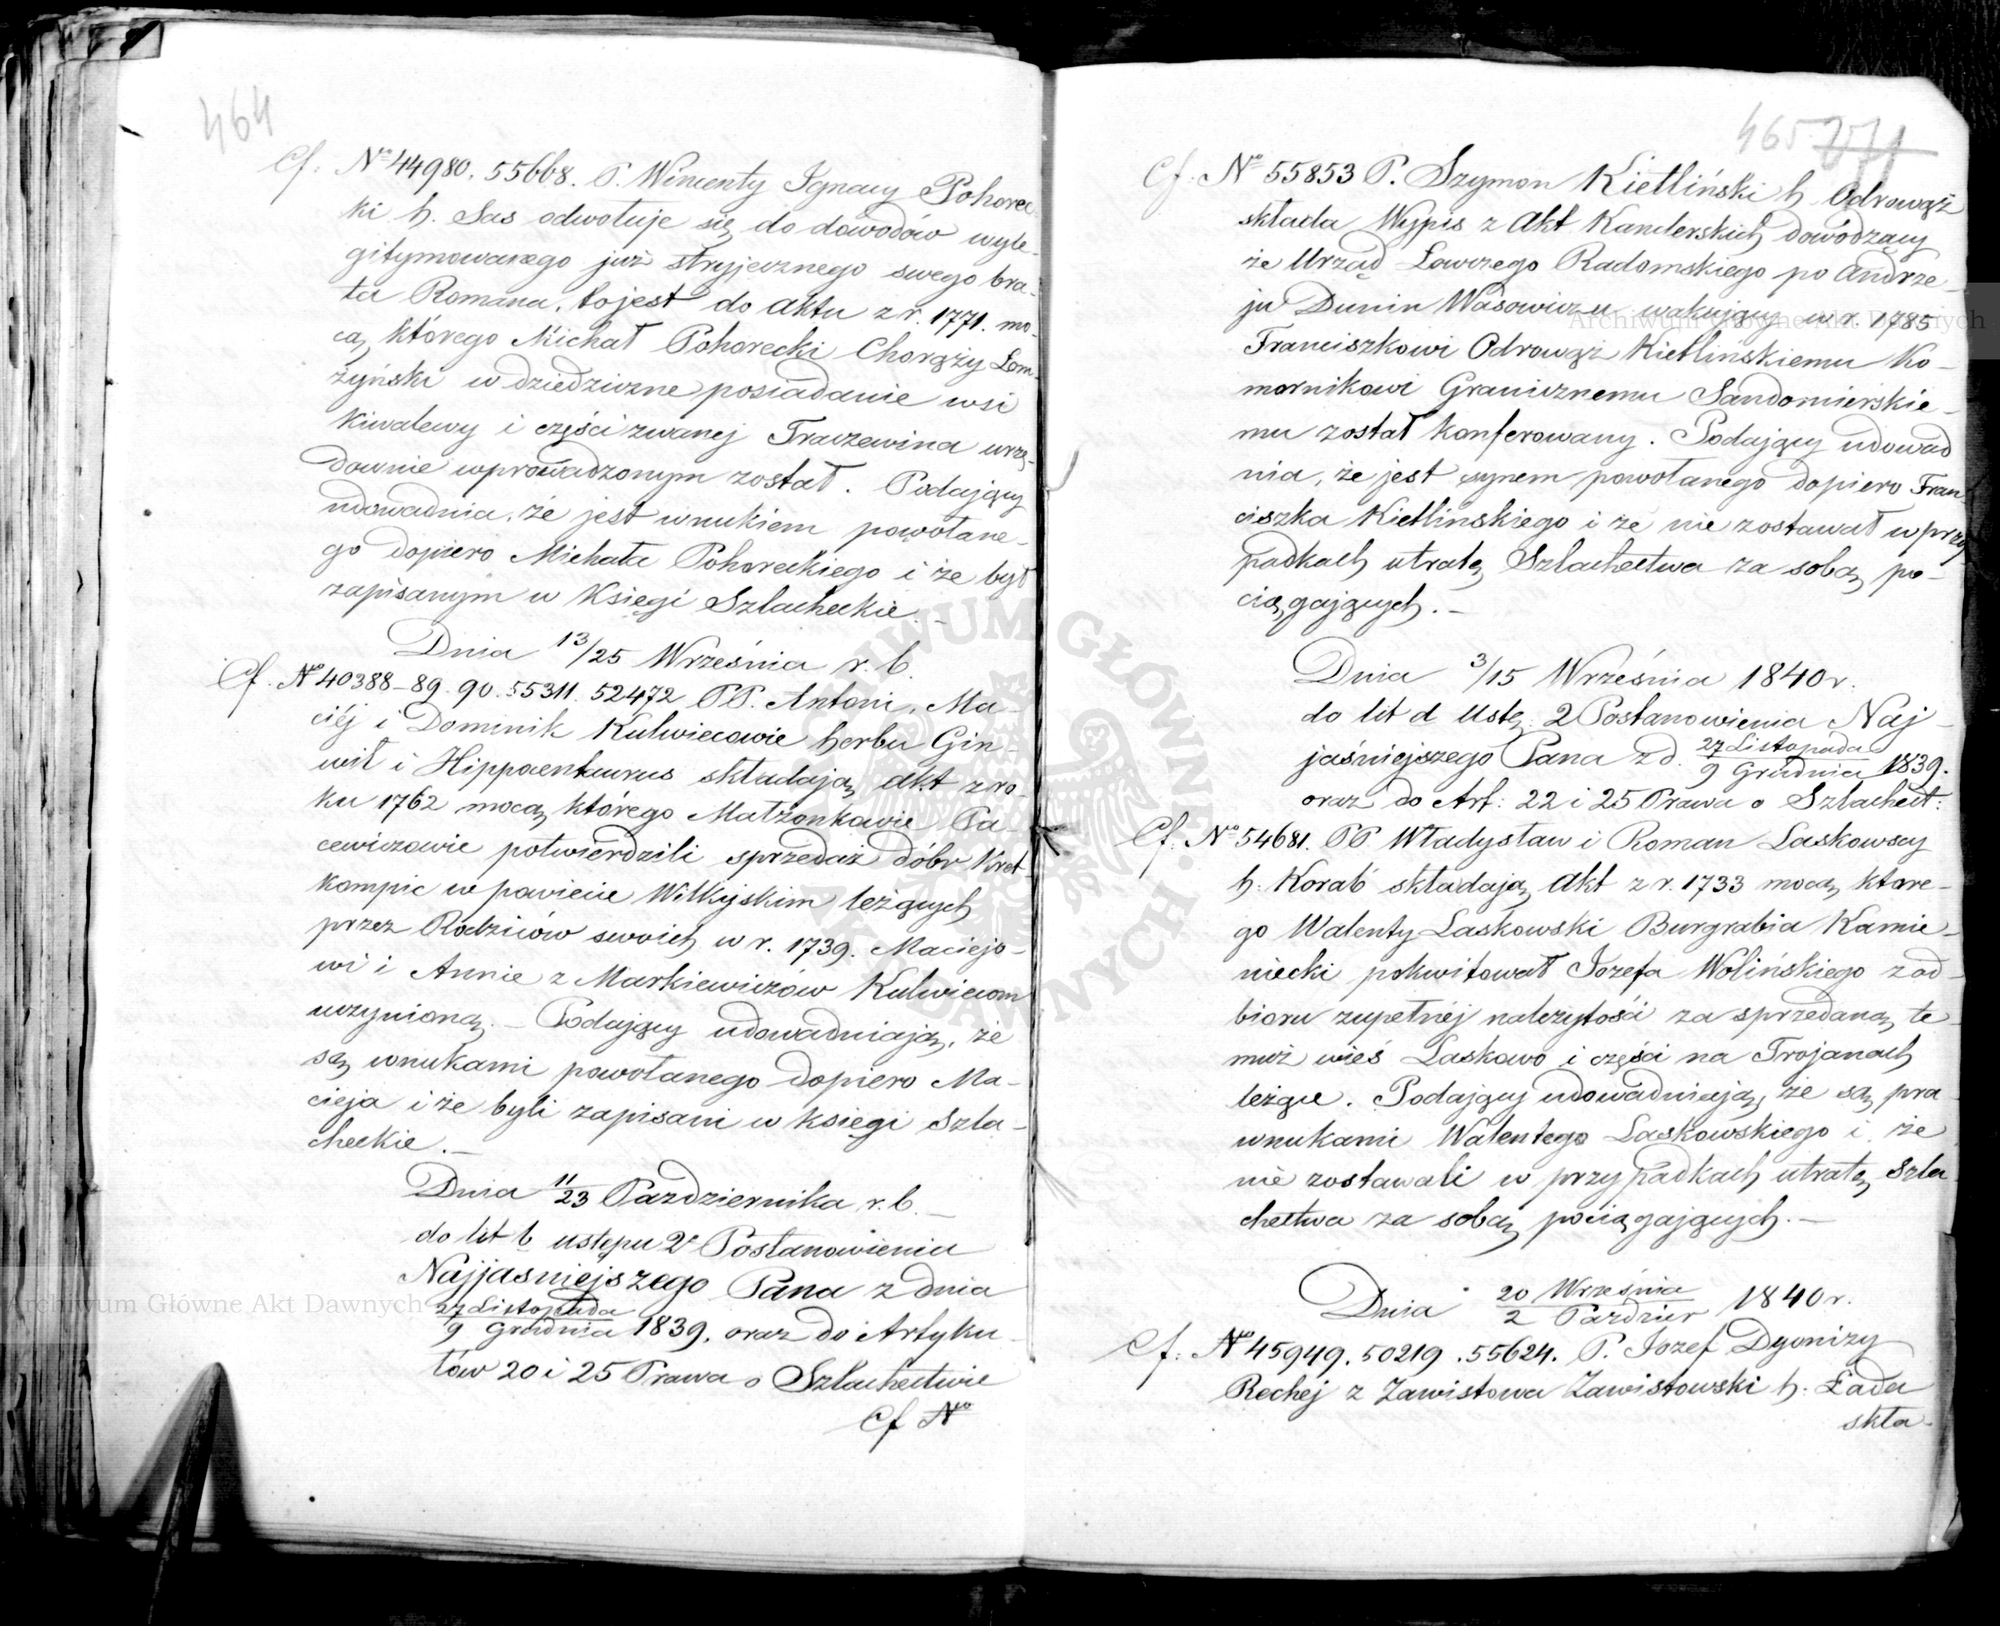 464
Cf. No 44980. 55668. P. Wincenty Ignacy Pohorec-
ki h. Sas odwołuje się do dowodów wyle-
gitymowanego już stryjecznego swego bra-
ta Romana, to jest do aktu z r. 1771. mo-
cą którego Michał Pohorecki Chorąży Łom-
żyński w dziedziczne posiadanie wsi
Kiwalewy i części zwanej Traczewina urzę-
downie wprowadzonym został. Podający
udowadnia, że jest wnukiem powołane-
go dopiero Michała Pohoreckiego i że był
zapisanym w Księgi Szlacheckie. –
Dnia 13/25 Września r. b.
Cf. No 40388-89. 90. 55311. 52472 PP. Antoni, Ma-
ciéj i Dominik Kulwiecowie herbu Gin-
wił i Hippocentaurus składają akt z ro-
ku 1762 mocą którego Małżonkowie Pa-
cewiczowie potwierdzili sprzedaż dóbr Kret
kompic w powiecie Wilkijskim leżących
przez Rodziców swoich w r. 1739. Maciejo-
wi i Annie z Markiewiczów Kulwiecom
uczynioną. – Podający udowadniają, że
są wnukami powołanego dopiero Ma-
cieja i że byli zapisani w księgi Szla-
checkie. –
Dnia 11/23 Pazdziernika r. b. –
do lit b ustępu 2o Postanowienia
Najjasniejszego Pana z dnia
27 Listopada / 9 Grudnia 1839, oraz do Artyku-
łów 20 i 25 Prawa o Szlachectwie
Cf No
465 271
Cf. No 55853 P. Szymon Kietliński h. Odrowąż
składa Wypis z Akt Kanclerskich dowódzący
że Urząd Łowczego Radomskiego po Andrze-
ju Dunin Wąsowiczu wakujący w r. 1785
Franciszkowi Odrowąż Kietlińskiemu Ko-
mornikowi Granicznemu Sandomierskie-
mu został konferowany. Podający udowad
nia, że jest synem powołanego dopiero Fran
ciszka Kietlinskiego i że nie zostawał w przy
padkach utratę Szlachectwa za sobą po-
ciągających. –
Dnia 3/15 Września 1840 r.
do lit d Ustę. 2 Postanowienia Naj-
jaśniejszego Pana z d. 27 Listopada / 9 Grudnia 1839.
oraz do Art: 22 i 25 Prawa o Szlachect:
Cf. No 54681. PP. Władysław i Roman Laskowscy
h. Korab składają Akt z r. 1733 mocą które-
go Walenty Laskowski Burgrabia Kamie-
niecki pokwitował Józefa Wolińskiego z od-
bioru zupełnéj należytości za sprzedaną te-
muż wieś Laskowo i części na Trojanach
leżące. Podający udowadniają, że są pra
wnukami Walentego Laskowskiego i że
nie zostawali w przypadkach utratę Szla
chectwa za sobą pociągających. –
Dnia 20 Września / 2 Pazdzier 1840 r.
Cf. No 45949. 50219. 55624. P. Jozef Dyonizy
Rochej z Zawistowa Zawistowski h. Łada
skła-
Archiwum Główne Akt Dawnych
Archiwum Główne Akt Dawnych
ARCHIWUM GŁÓWNE AKT DAWNYCH